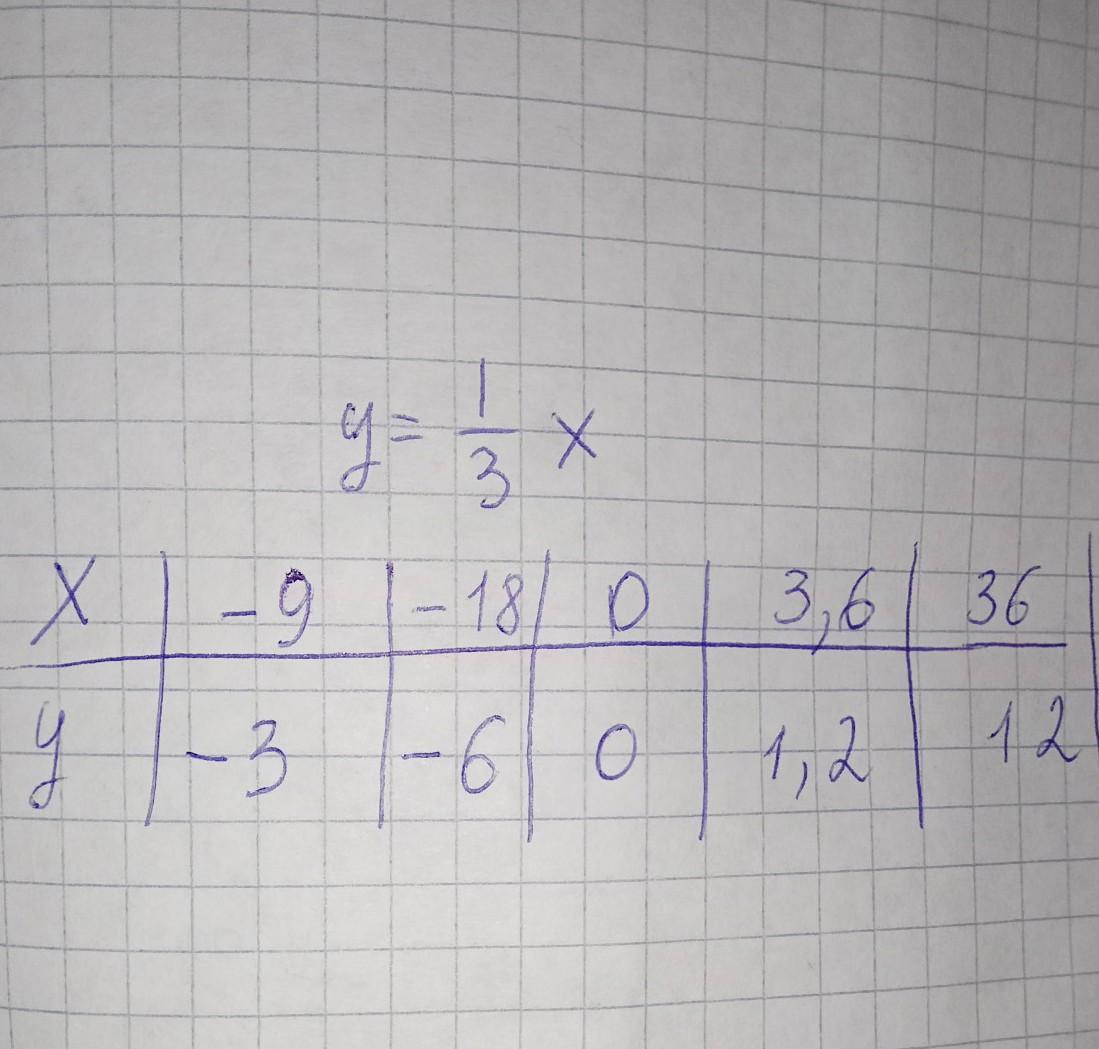 y = 1/3 x
x | -9 | -18 | 0 | 3,6 | 36 |
y | -3 | -6 | 0 | 1,2 | 12